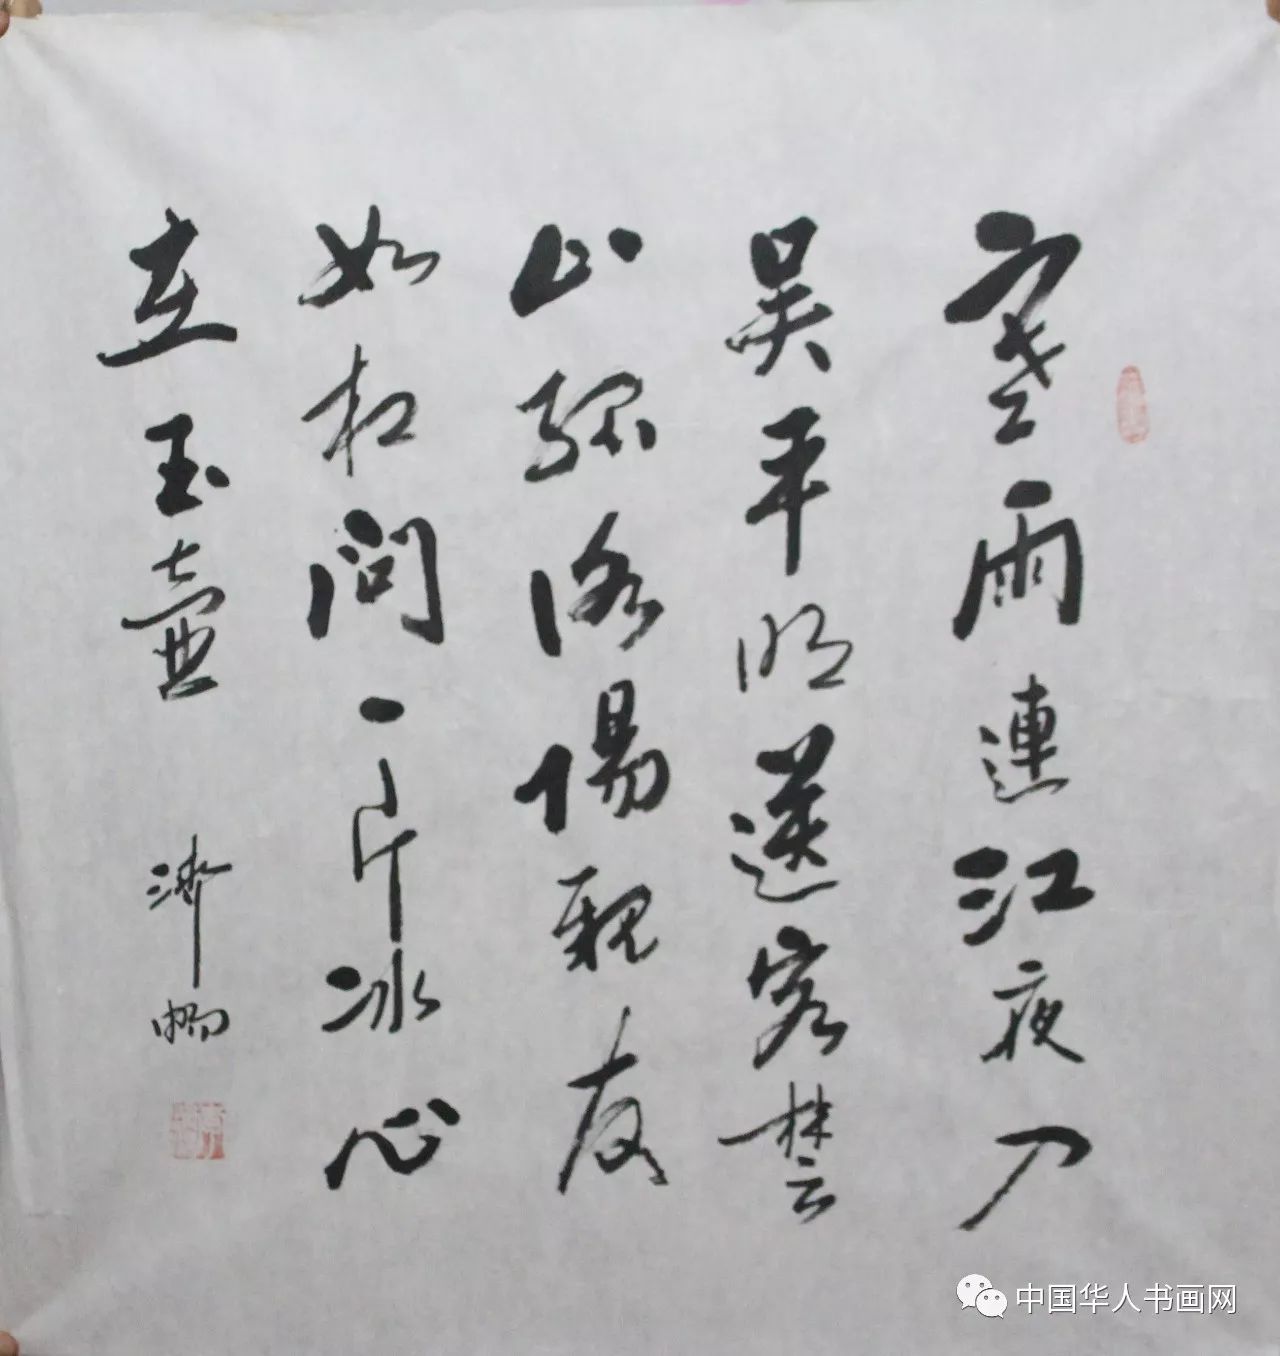 寒雨連江夜入
吴平明送客楚
山孤洛陽親友
如相问一片冰心
在玉壺
济畅
中国华人书画网